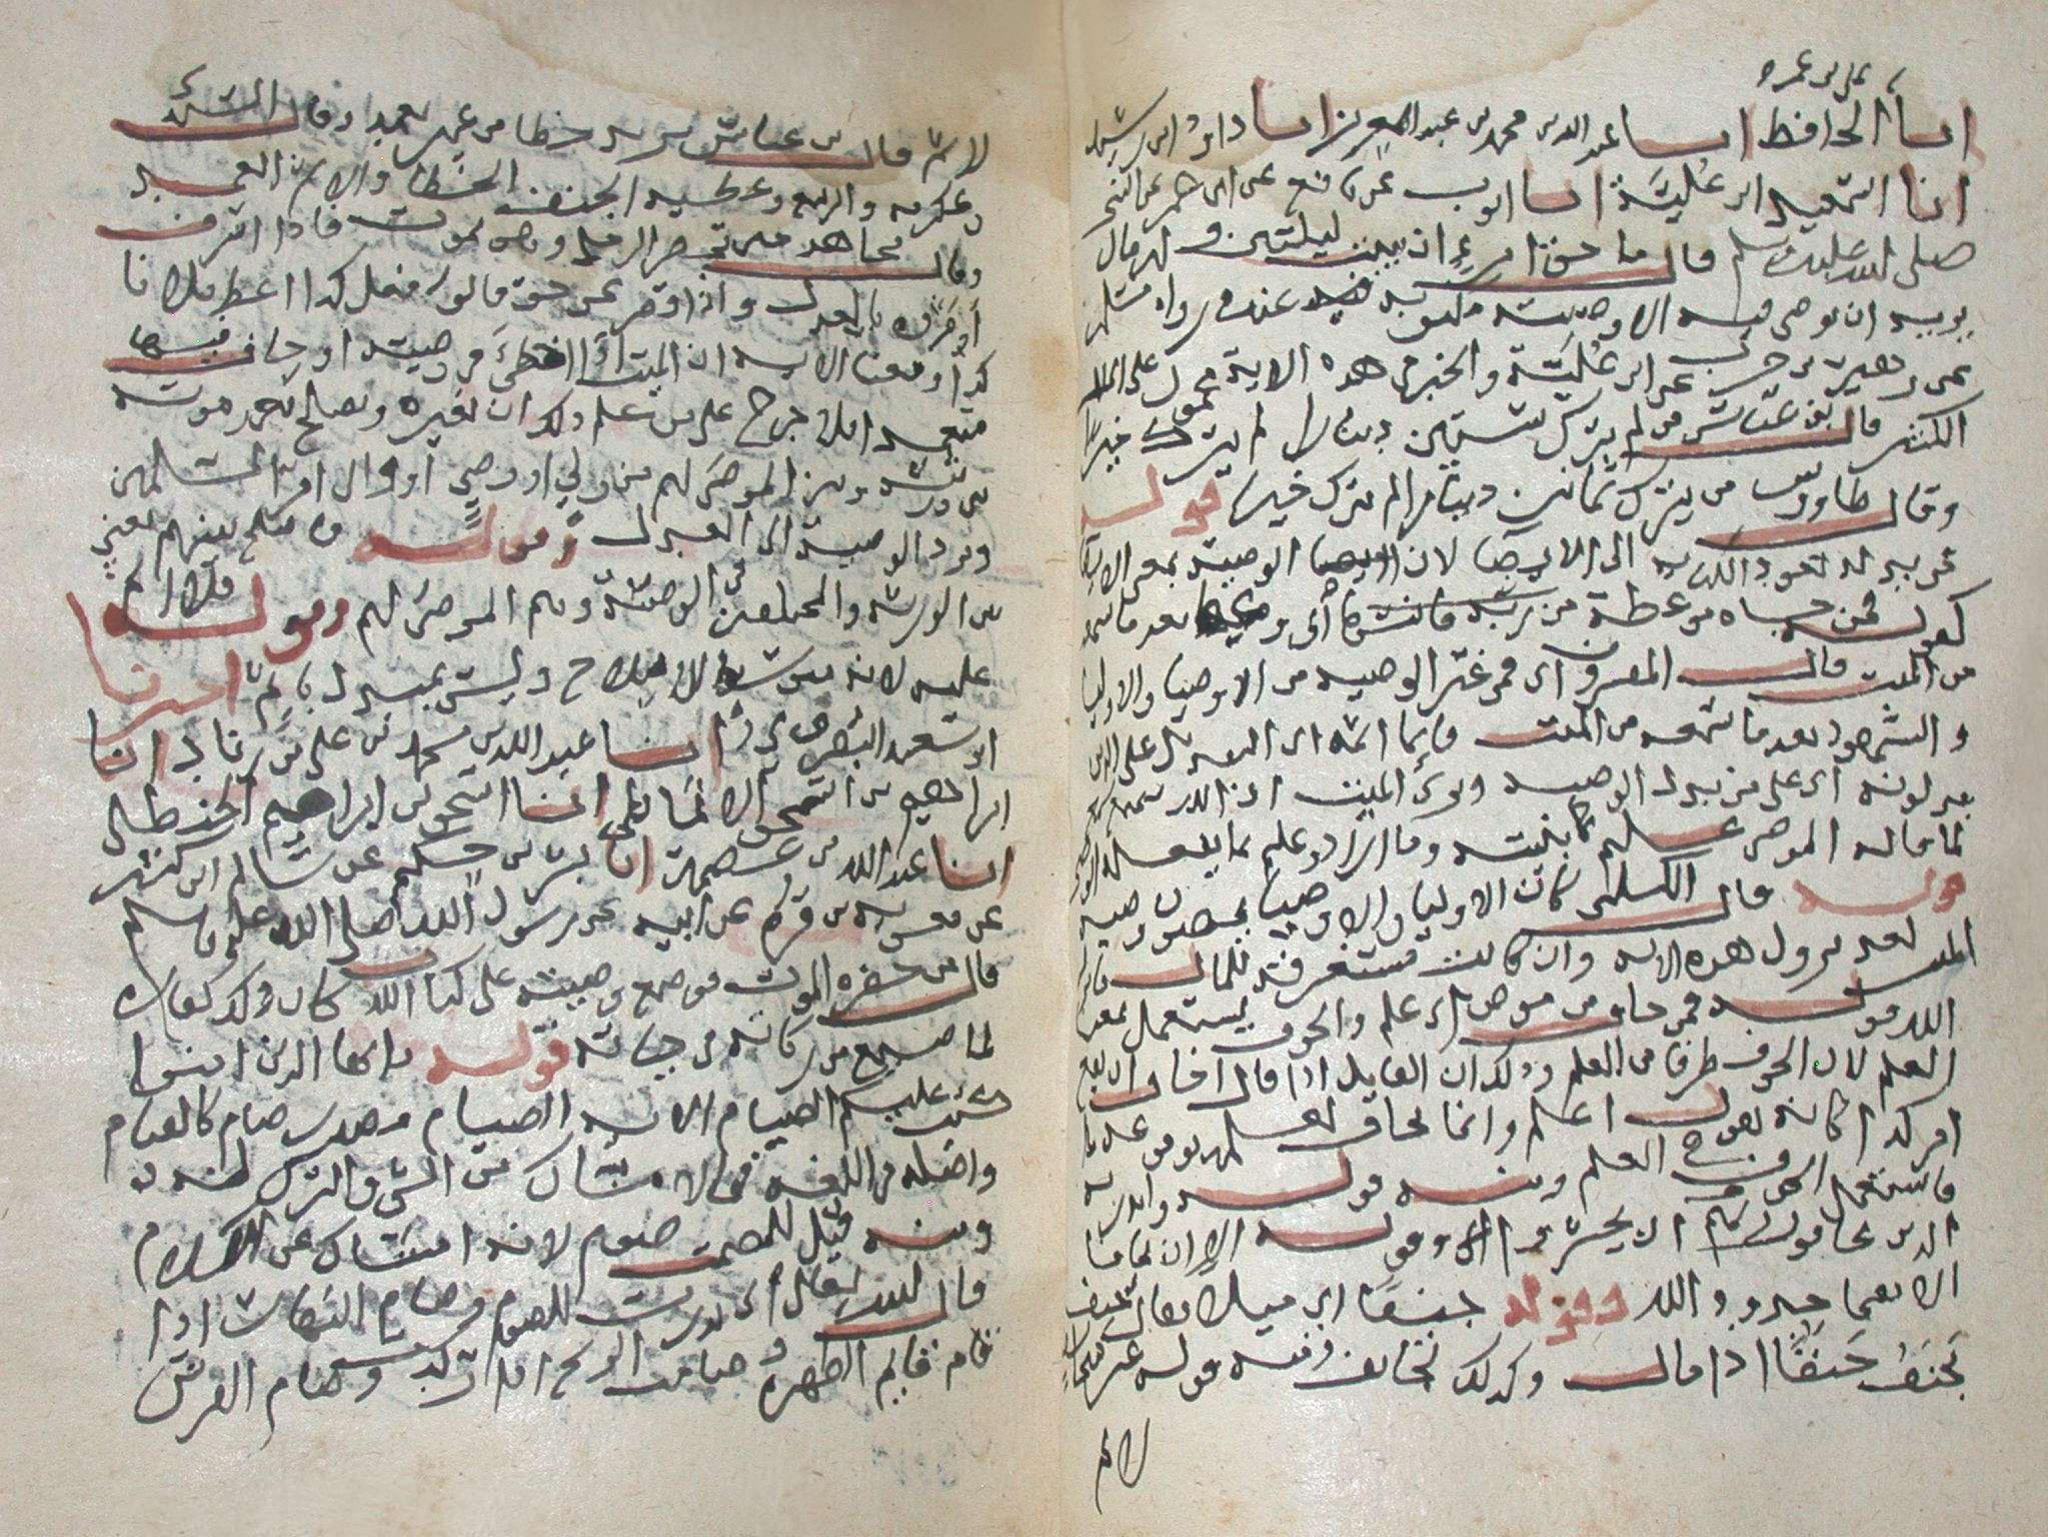 علي بن عمر
انبا الحافظ انبا عبد الله بن محمد بن عبد العزيز انبا داود ابن رشيد
انبا اسمعيل ابن علية انبا ايوب عن نافع عن ابن عمر عن النبي
صلى الله عليه وسلم قال ما حق امرءٍ ان يبيت ليلتين وله مال
يريد ان يوصي فيه الا وصيته مكتوبه عنده رواه مسلم
عن زهير بن حرب عن ابن علية والخير في هذه الاية محمول على المال
الكثير قال بن عباس من لم يترك ستين دينارا لم يترك خيرا
وقال طاووس من يترك ثمانين دينارا لم يترك خيرا قوله
فمن بدله تعود الكنايه الى الايصا لان الوصية بمعنى الايصا
كقوله فمن جاه موعظة من ربه فانتهى بعد ما سمعه
من الميت قال المفسرون اى فمن غير الوصيه من الاوصيا والاوليا
والشهود بعد ما سمعه من الميت فانما اثمه اى اثم التبديل على الذين
يبدلونه اى على من يبدل الوصيه وبرئ الميت ان الله سميع
لما قاله الموصي عليم بنيته وما اراد وعليم بما يفعله الوصي
قوله قال الكلبي كان الاوليا والاوصيا يمضون وصية
الميت بعد نزول هذه الاية وان كانت مستغرقة للمال فانزل
الله قوله فمن خاف من موص اى علم والخوف يستعمل بمعنى
العلم لان الخوف طرفا من العلم وذلك ان القايل اذا قال اخاف ان يقع
امر كذا كانه يقول اعلم وانما يخاف لعلمه بوقوعه
فاستعمل الخوف في العلم ومنه قوله وانذر به
الذين يخافون ان يحشروا الى وقوله الا ان يخافا
الا يقيما حدود الله وقوله جنفا اى ميلا يقال جنف
يجنف جنفا اذا مال وكذلك تجانف ومنه قوله غير متجانف
لاثم
لاثم قال بن عباس يريد خطا من غير تعمد وقال السدي
وعكرمه والربيع وعطيه الجنف الخطا والاثم العمد
وقال مجاهد هذا حين يحضر الرجل وهو يموت فاذا اسرف
امره بالعدل واذا قصر عن حق قالوا افعل كذا اعط فلانا
كذا ومعنا الايه ان الميت اذا اخطئ في وصيته او جاف فيها
متعمدا فلا حرج على من علم ذلك ان يغيره ويصلح بعد موته
بين ورثته وبين الموصى لهم من ولي او وصي او والي امر المسلمين
ويرد الوصية الى العدل وقوله فاصلح بينهم يعني
بين الورثه والمختلفين في الوصية وهم الموصى لهم وقوله فلا اثم
عليه لانه متوسط للاصلاح وليس بمبدل باثم اخبرنا
ابو سعيد النضروي انبا عبد الله بن محمد بن علي بن زياد انبا
ابراهيم بن اسحق الانماطي انبا اسحق بن ابراهيم الحنظلي
انبا عبد الله بن عصمة انبا بشر بن حكيم عن سالم ابن كثير
عن معويه بن قرة عن ابيه عن رسول الله صلى الله عليه وسلم
قال من حضره الموت فوضع وصيته على كتاب الله كان ذلك كفارة
لما ضيع من زكاته في حياته قوله يا ايها الذين امنوا
كتب عليكم الصيام الايه الصيام مصدر صام كالقيام
واصله في اللغه الامساك عن الشي والترك له
ومنه قيل للصمت صوم لانه امساك عن الكلام
قال الله تعالى اني نذرت للرحمن صوما وصام النهار اذا
قام قايم الظهره وصامت الريح اذا ركدت وصام الفرس